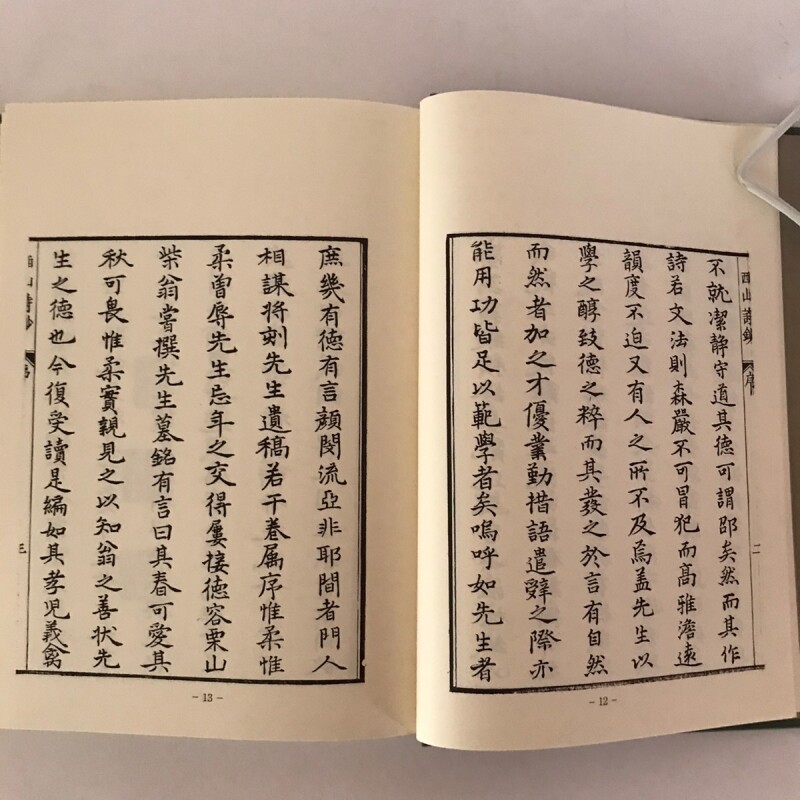 西山詩鈔 序 二
不就潔静守道其德可謂卲矣然而其作
詩若文法則森嚴不可冒犯而高雅澹遠
韻度不迫又有人之所不及焉盖先生以
學之醇致德之粹而其發之於言有自然
而然者加之才優業勤措語遣辭之際亦
能用功皆足以範學者矣嗚呼如先生者
- 12 -
庶幾有德有言顔閔流亞非耶間者門人
相謀將刻先生遺稿若干卷属序惟柔惟
柔曽辱先生忌年之交得屢接德容栗山
柴翁嘗撰先生墓銘有言曰其春可愛其
秋可畏惟柔實親見之以知翁之善状先
生之德也今復受讀是編如其孝児義禽
西山詩鈔 序 三
- 13 -